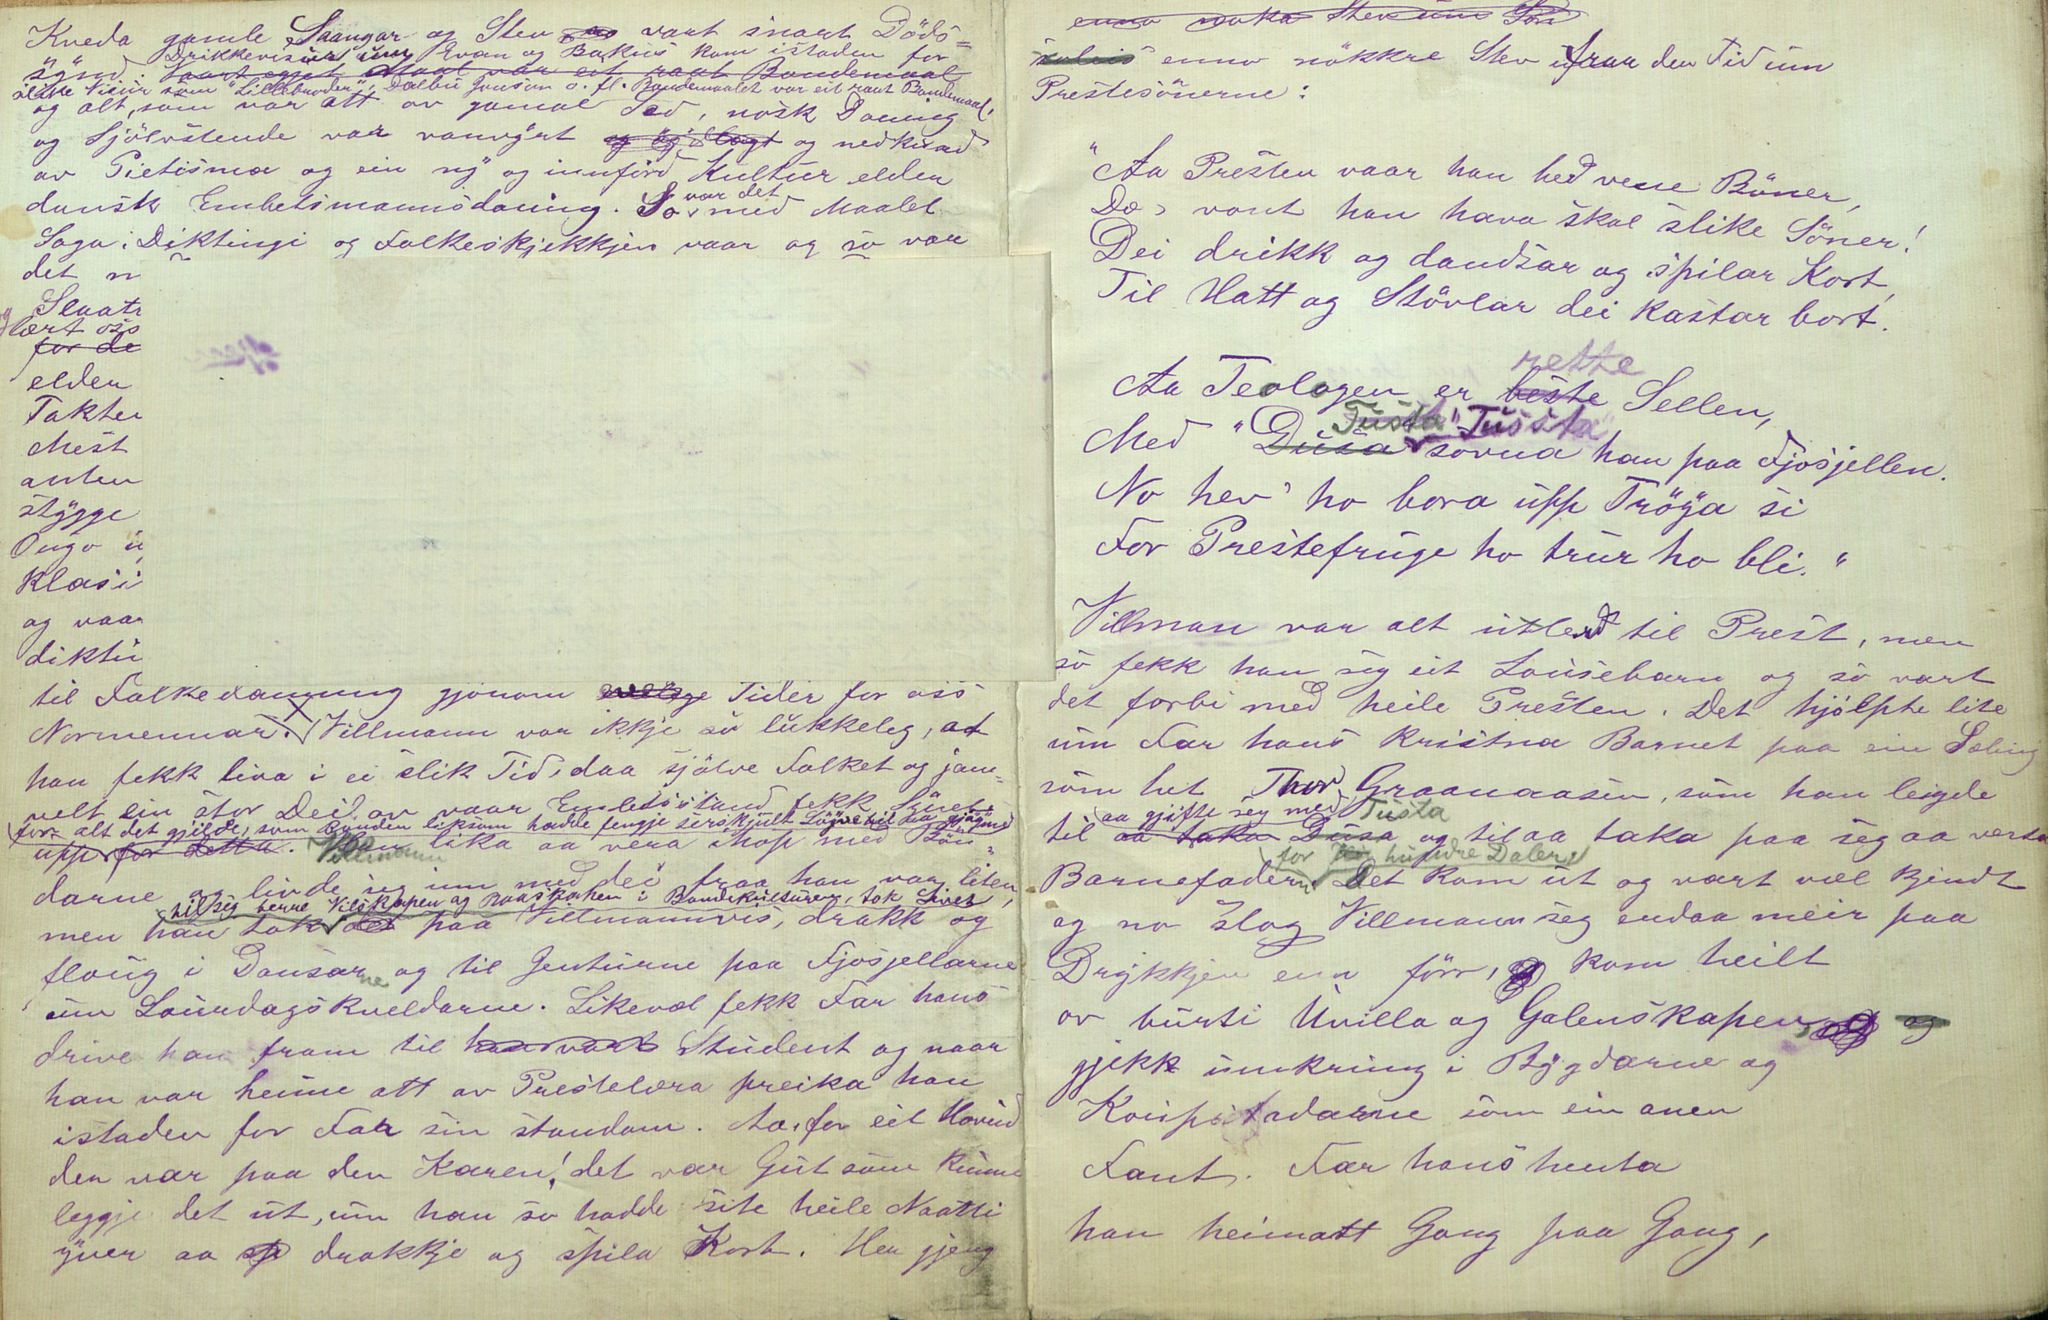 Kveda gamle Saangar og Stev vart snart Döds=
Drikkevisur um Evan og Bakus kom istaden for
sÿnd. vaart eget Maal var eit raat Bondemaal
slike Visur som "Lillebroder", Dalbu Jonson o. fl. Bondemaalet var eit raat Bondemaal,
og alt, som var att av gamal Sed, norsk Daning
og Sjölvstende var vanvÿrt og nedkuad
av Pietisma og ein nÿ og innförd Kultur elder
dansk Embetsmannsdaning. So var det med Maalet
Soga, Diktingi og Folkeskjikkjen vaar og so var
det n
Slaatt
lært oss
for de
elder
Takter
Mest
anten
stÿgge
Ungo u
klasi
og vaar
diktu
til Folkedaning gjönom Tider for oss
Normennar. Villmann var ikkje so lukkeleg, at
han fekk liva i ei slik Tid, daa sjölve Folket og jam=
velt ein stor Deil av vaar Embetsstand fekk Sÿnet
for alt det gjilde, som Bonden liksom hadde fengje serskjult
upp for detta. Villmann lika aa vera ihop med Bön=
darne og livde seg inn med dei fraa han var liten,
til seg berre Vilskapen og Raaskapen i Bondekulturen, tok Livet
men han tok det paa Villmannvis, drakk og
floug i Dansarne og til Genturne paa Fjosjellarne
um Lourdagskveldarne. Likevæl fekk Far hans
drive han fram til han vart Student og naar
han var heime att av Prestelæra preika han
istaden for Far sin stundom. Aa, for eit Hovud
den var paa den Karen! det var Gut som kunne
leggje det ut, um han so hadde site heile Naatti
ÿver aa drakkje og spila Kort. Her gjeng
enno noka Stev um
enno nökkre Stev fraa den Tid um
Prestesönerne:
"Aa Presten vaar han hed vene Böner,
Dæ vont han hava skal slike Söner!
Dei drikk og dandsar og spilar Kort,
Til Hatt og Stövlar dei kastar bort.
rette
Aa Teologen er beste Sellen,
Tusta "Tussta"
Med "Dusa sovna han paa Fjosjellen.
No hev' ho bora upp Tröÿa si
For Prestefruge ho trur ho bli."
Villman var alt utlerd til Prest, men
so fekk han seg eit Lousebarn og so vart
det forbi med heile Presten. Det hjölpte lite
um Far hans kristna Barnet paa ein Sæling
som het Thor Graanaasen, som han leigde
aa gjifte seg med Tusta
til aa taka Dusa og til aa taka paa seg aa verta
for hundre Daler
Barnefadern. Det kom ut og vart væl kjendt
og no slog Villmann seg endaa meir paa
Drÿkkjen enn förr, kom heilt
av burti Uvilla og Galenskapen, og
gjekk umkring i Bÿgdarne og
Koupstadarne som ein anen
Fant. Far hans henta
han heimatt Gong paa Gong,